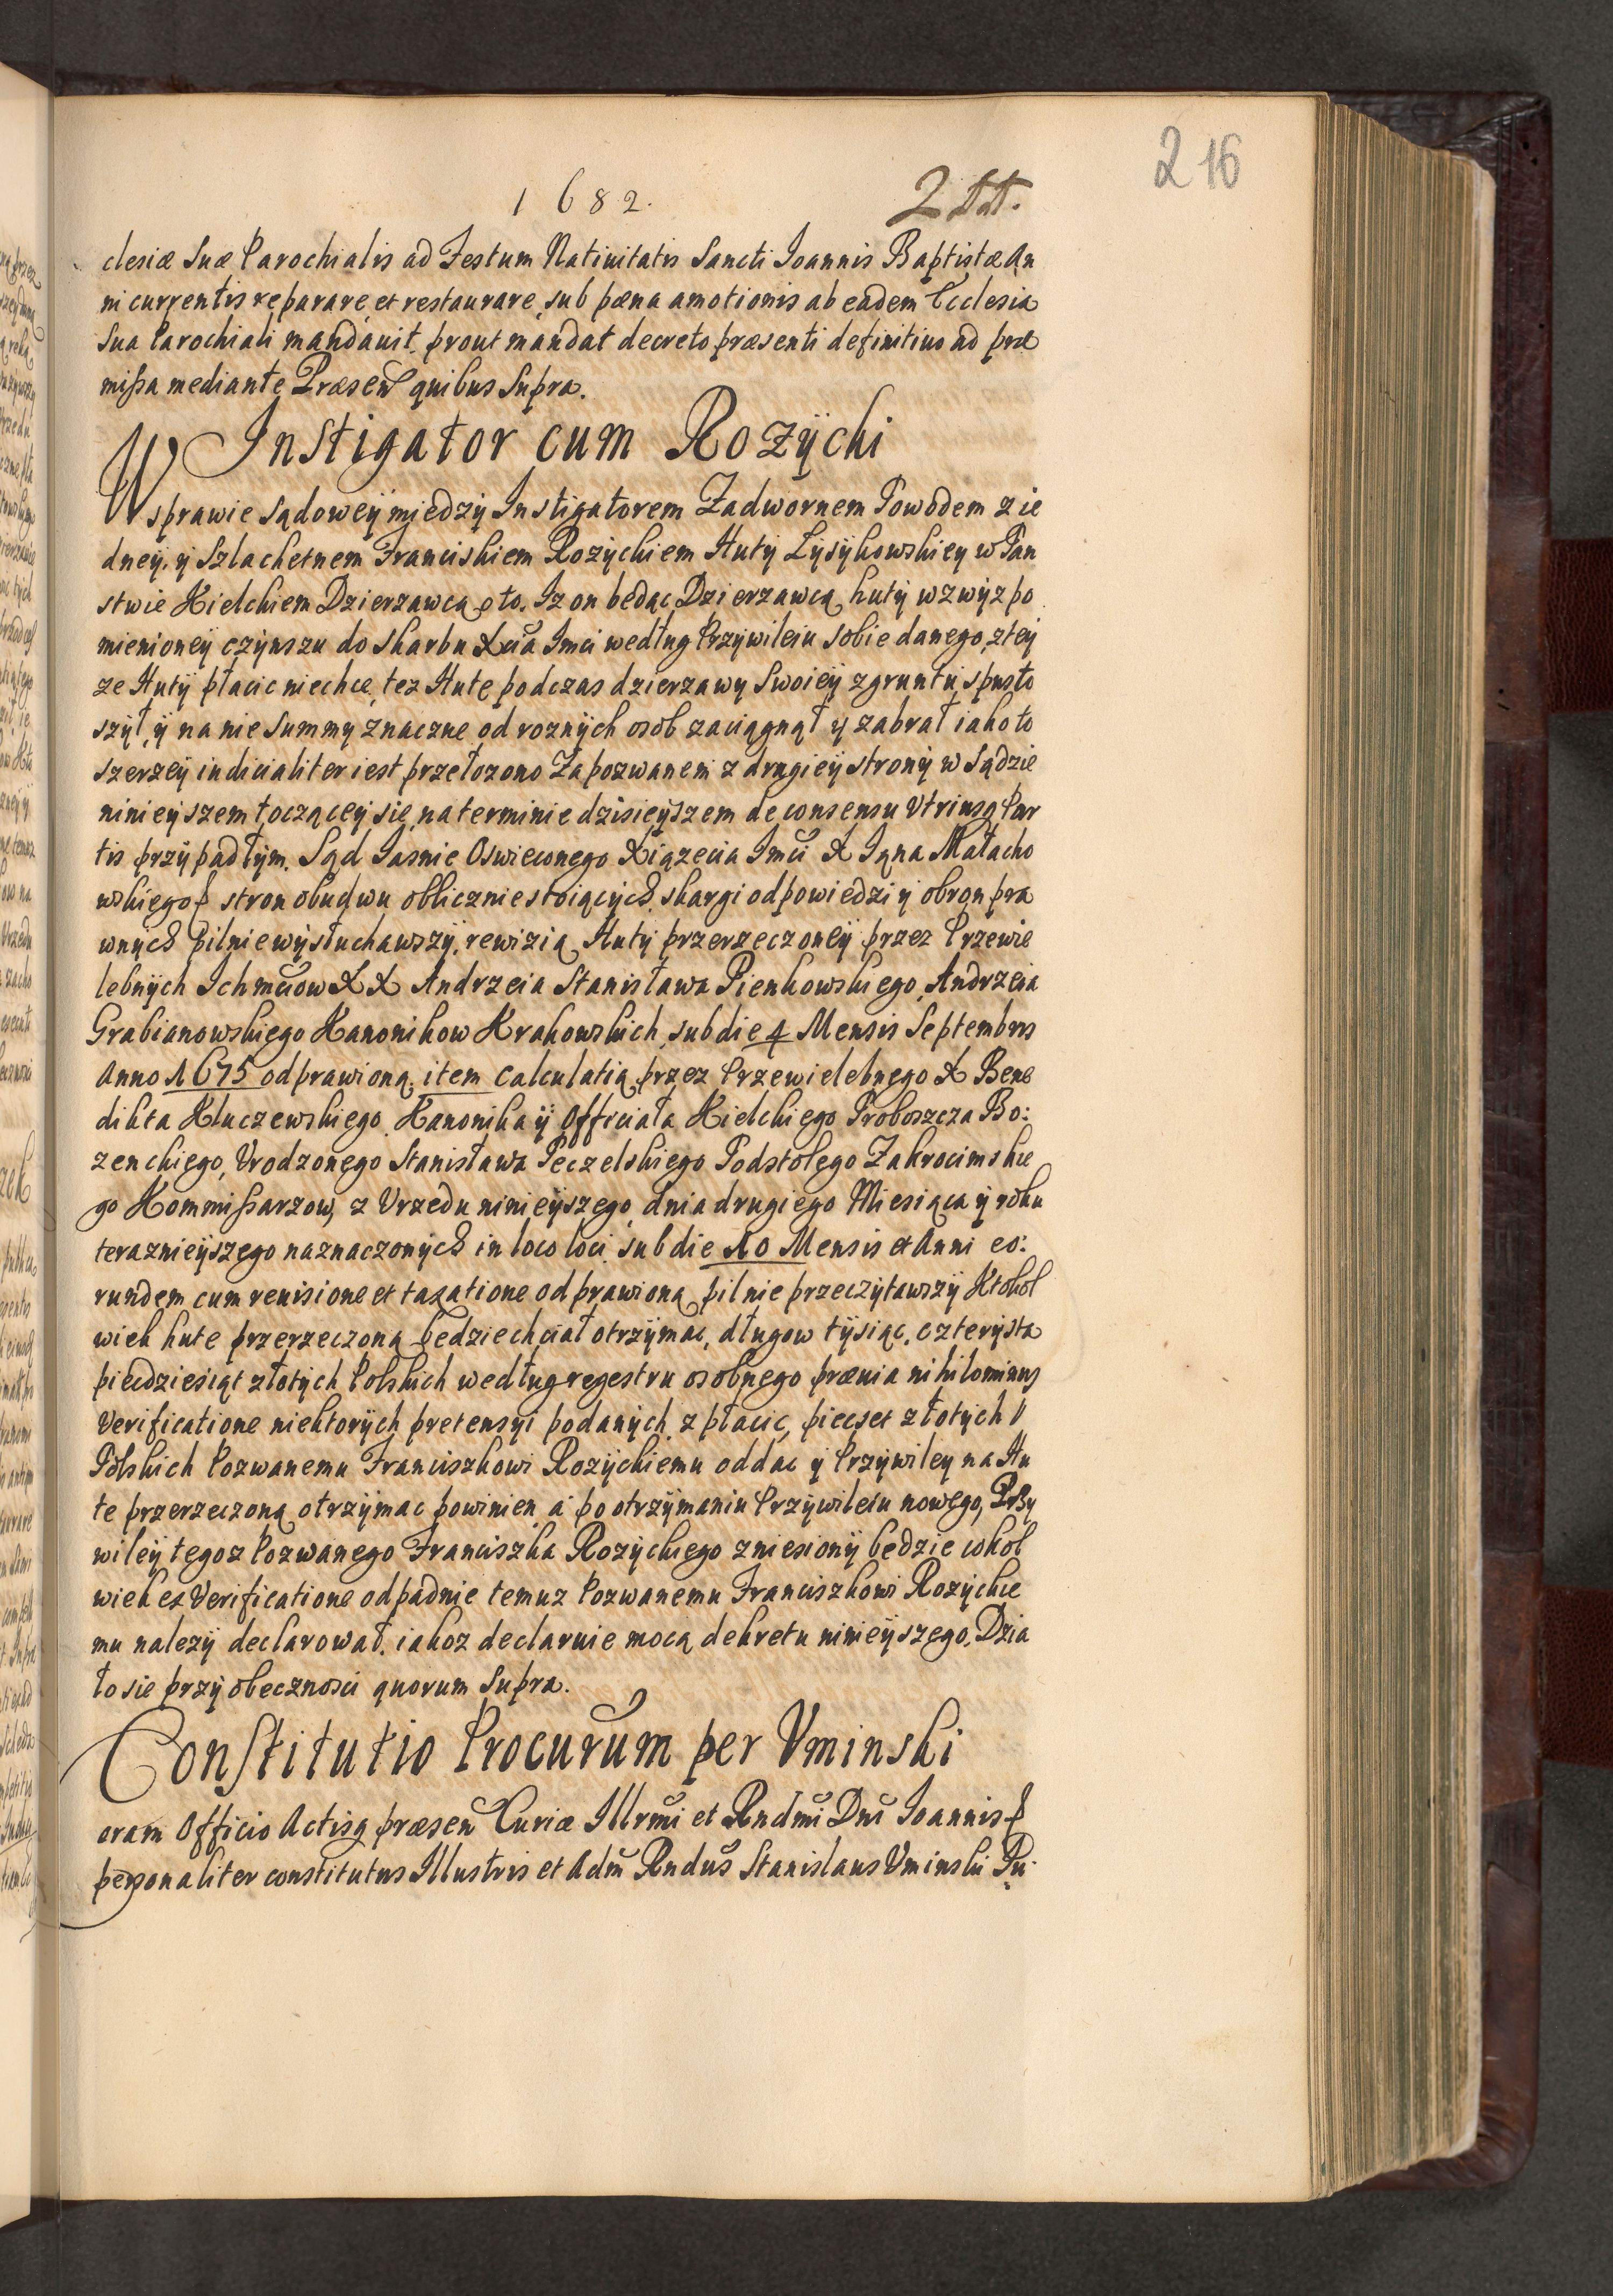 216
1682.
clesiæ Suæ Parochialis ad Festum Natiuitatis Sancti Ioannis Baptistæ An
ni currentis reparare et restaurare, sub pæna amotionis ab eadem Ecclesia
Sua Parochiali mandauit, prout mandat decreto præsenti definitiuo ad præ
missa mediante Præsen quibus Supra.
Instigator cum Rozÿcki
W sprawie Sądoweÿ miedzÿ Instigatorem Zadwornem Powodem z ie
dneÿ, ÿ Szlachetnem Franciskiem Rozÿckiem Hutÿ Łysÿkowskieÿ w Pan
stwie Kielckiem Dzierzawcą, o to. Iz on będąc Dzierzawcą hutÿ wzwÿz po
mienioneÿ czÿnszu do skarbu Xcia Imci według Przÿwileiu sobie danego, z teÿ
ze Hutÿ płacic niechce, tez Hute podczas dzierzawy Swoieÿ z gruntu spusto
szÿł, ÿ na nie Summy znaczne od roznÿch osob zaciągnął ÿ zabrał iako to
szerzeÿ iudicialiter iest przełozono Zapozwanem z drugieÿ stronÿ w Sądzie
ninieÿszem toczączeÿ się, na terminie dzisieÿszem de consensu Vtriusq Par
tis przÿpadłÿm. Sąd Iasnie Oswieconego Xiązecia Imci X Iana Małacho
wskiego stron obudwu oblicznie stoiącÿch, skargi odpowiedzi ÿ obron pra
wnÿch pilnie wÿsłuchawszÿ, rewizią Hutÿ przerzeczoneÿ przez Przewie
lebnÿch Ichmciow XX Andrzeia Stanisława Pienkowskiego, Andrzeia
Grabianowskiego Kanonikow Krakowskich, sub die 4 Mensis Septembris
Anno 1675 odprawioną, item calculatią przez Przewielebnego X Bene
dikta Kluczewskiego Kanonika ÿ Officiała Kielckiego Proboszcza Bo:
zenckiego, Vrodzonego Stanisława Peczelskiego Podstolego Zakrocimskie
go Kommissarzow, z Vrzedu ninieÿszego dnia drugiego Miesiąca ÿ roku
teraznieÿszego naznaczonÿch in loco loci sub die 10 Mensis et Anni eo:
rundem cum reuisione et taxatione odprawioną pilnie przeczÿtawszÿ Ktokol
wiek hute przerzeczoną będzie chciał otrzÿmac, długow tÿsiąc, czterÿsta
piedziesiąt złotÿch Polskich według regestru osobnego præuia nihilominus
Verificatione niektorÿch pretensyi podanÿch zpłacic, piecset złotÿch
Polskich Pozwanemu Franciszkowi Rozÿckiemu oddac ÿ Przÿwileÿ na Hu
te przerzeczoną otrzÿmac powinien, a po otrzÿmaniu Przÿwileiu nowego, Przy
wileÿ tegoz Pozwanego Franciszka Rozÿckiego zniesionÿ będzie cokol
wiek ex Verificatione odpadnie temuz Pozwanemu Franciszkowi Rozÿckie
mu nalezÿ declarował, iakoz declaruie mocą dekretu ninieÿszego. Dzia
ło sie przÿ obecznosci quorum Supra.
Constitutio Procurum per Vminski
oram Officio Actisq præsen Curiæ Illrmi et Rndmi Dni Ioannis
personaliter constitutus Illustris et Adm Rndus Stanislaus Vminski Pu: